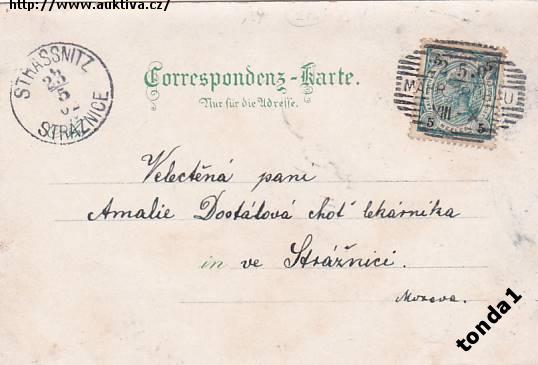 http://www.auktiva.cz/
STRASSNITZ
STRÁŽNICE
Correspondenz-Karte.
Nur für die Adresse.
5 5
Velectěná paní
Amalie Dostálová choť lekárníka
in ve Strážnici.
Morava.
tonda1